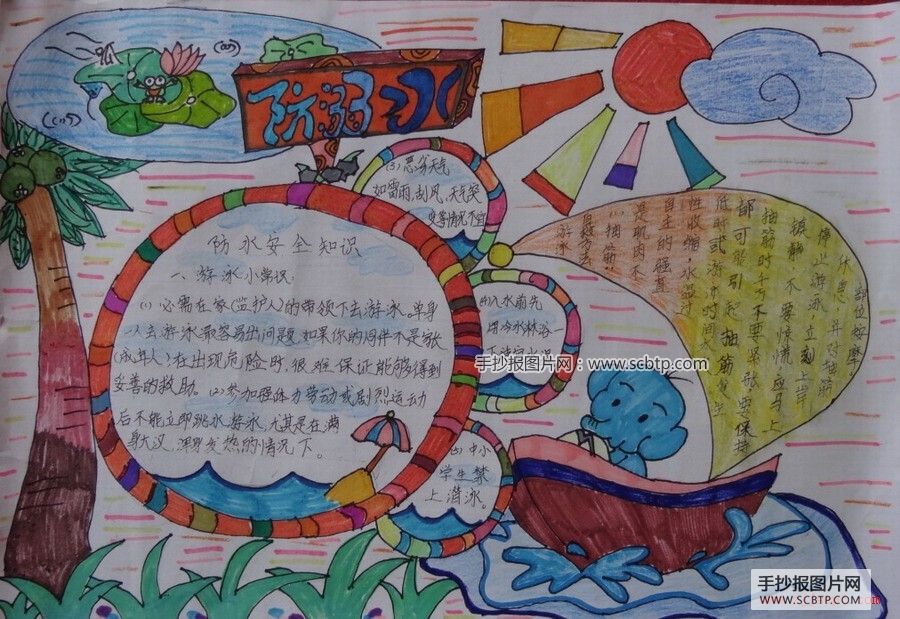 防溺水
防水安全知识
一、游泳小常识:
(1) 必需在家(监护人)的带领下去游泳。单身
人去游泳最容易出问题,如果你的同伴不是家
(成年人)在出现危险时,很难保证能够得到
妥善的救助。(2)参加强体力劳动或剧烈运动
后不能立即跳水游泳,尤其是在满
身大汉,浑身发热的情况下。
(3)恶劣天气
如雷雨,刮风,天气突
变等情况不宜
(4)入水前先
用冷水淋浴
中小
学生禁
上游泳。
游泳
自救方法
一、抽筋:
是肌肉不
自主的强直
性收缩,水温
低时或游泳时间太
都可能引起抽筋发生
抽筋时千万不要紧张,要保持
镇静,不要惊慌,应马上
停止游泳,立刻上岸
休息,并对抽筋
部位按摩
手抄报图片网:www.scbtp.com
手抄报图片网
WWW.SCBTP.COM